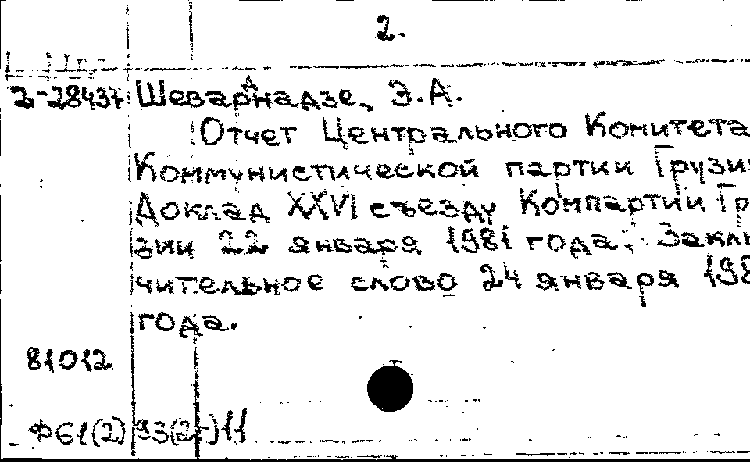 2.
2-28437 Шеварднадзе, Э.А.
Отчет Центрального Комитета
Коммунистической партии Грузи
Доклад XXVI съезду Компартии Гр
зии 22 января 1981 года. Заклю
чительное слово 24 января 198
года.
81012
Ф61(2) 93(2)11